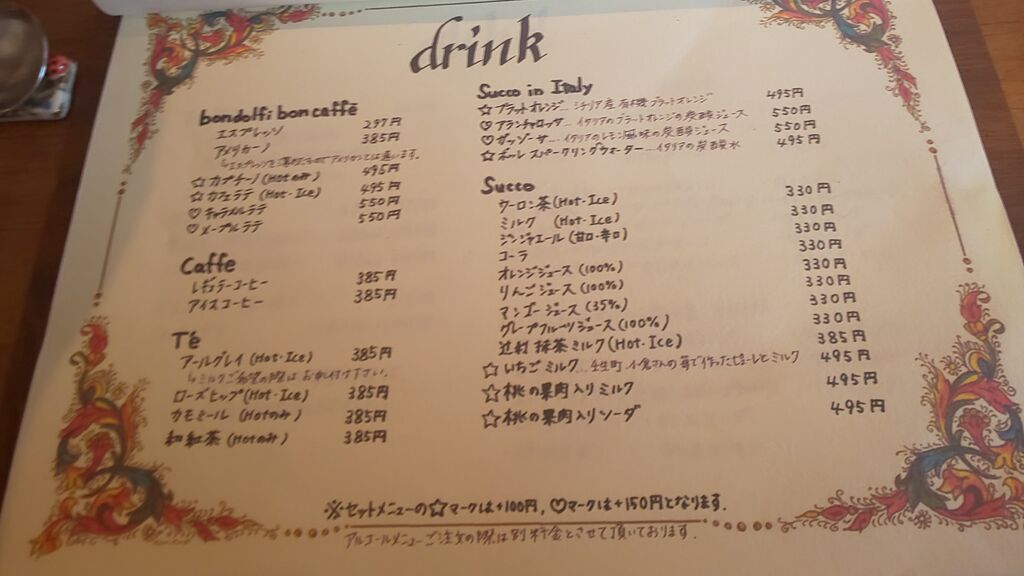 drink
bondolfi boncaffē
エスプレッソ 297円
アメリカーノ 385円
↳エスプレッソを薄めたものでアメリカンとは違います。
☆カプチーノ(Hotのみ) 495円
☆カフェラテ(Hot・Ice) 495円
♡キャラメルラテ 550円
♡メープルラテ 550円
Caffe
レギュラーコーヒー 385円
アイスコーヒー 385円
Té
アールグレイ(Hot・Ice) 385円
↳ミルクご希望の際はお申し付け下さい。
ローズヒップ(Hot・Ice) 385円
カモミール(Hotのみ) 385円
和紅茶(Hotのみ) 385円
Succo in Italy
☆ブラッドオレンジ…シチリア産有機ブラッドオレンジ 495円
♡アランチャロッサ…イタリアのブラッドオレンジの炭酸ジュース 550円
♡ガッゾーサ…イタリアのレモン風味の炭酸ジュース 550円
☆ボーレ スパークリングウォーター…イタリアの炭酸水 495円
Succo
ウーロン茶(Hot・Ice) 330円
ミルク (Hot・Ice) 330円
ジンジャエール(甘口・辛口) 330円
コーラ 330円
オレンジジュース(100%) 330円
りんごジュース(100%) 330円
マンゴージュース(35%) 330円
グレープフルーツジュース(100%) 330円
辻村抹茶ミルク(Hot・Ice) 385円
☆いちごミルク…壬生町 小倉さんの苺で作ったじまーしとミルク 495円
☆桃の果肉入りミルク 495円
☆桃の果肉入りソーダ 495円
※セットメニューの☆マークは+100円,♡マークは+150円となります.
アルコールメニューご注文の際は別料金とさせて頂いております.